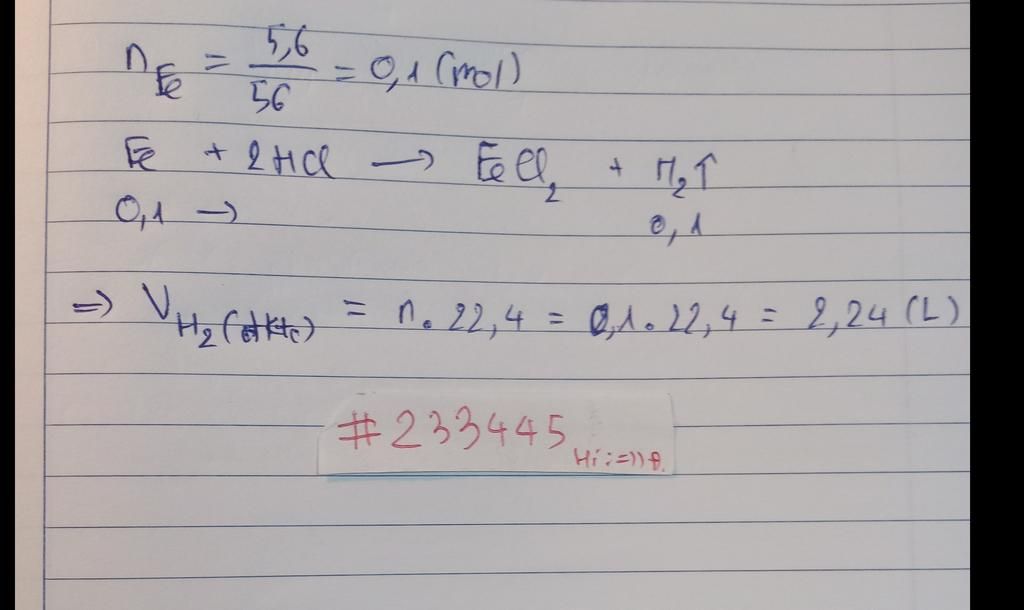 n_Fe = 5,6/56 = 0,1 (mol)
Fe + 2HCl → FeCl₂ + H₂↑
0,1 → 0,1
⇒ V_H₂(đktc) = n. 22,4 = 0,1. 22,4 = 2,24 (L)
#233445
Hi :=))